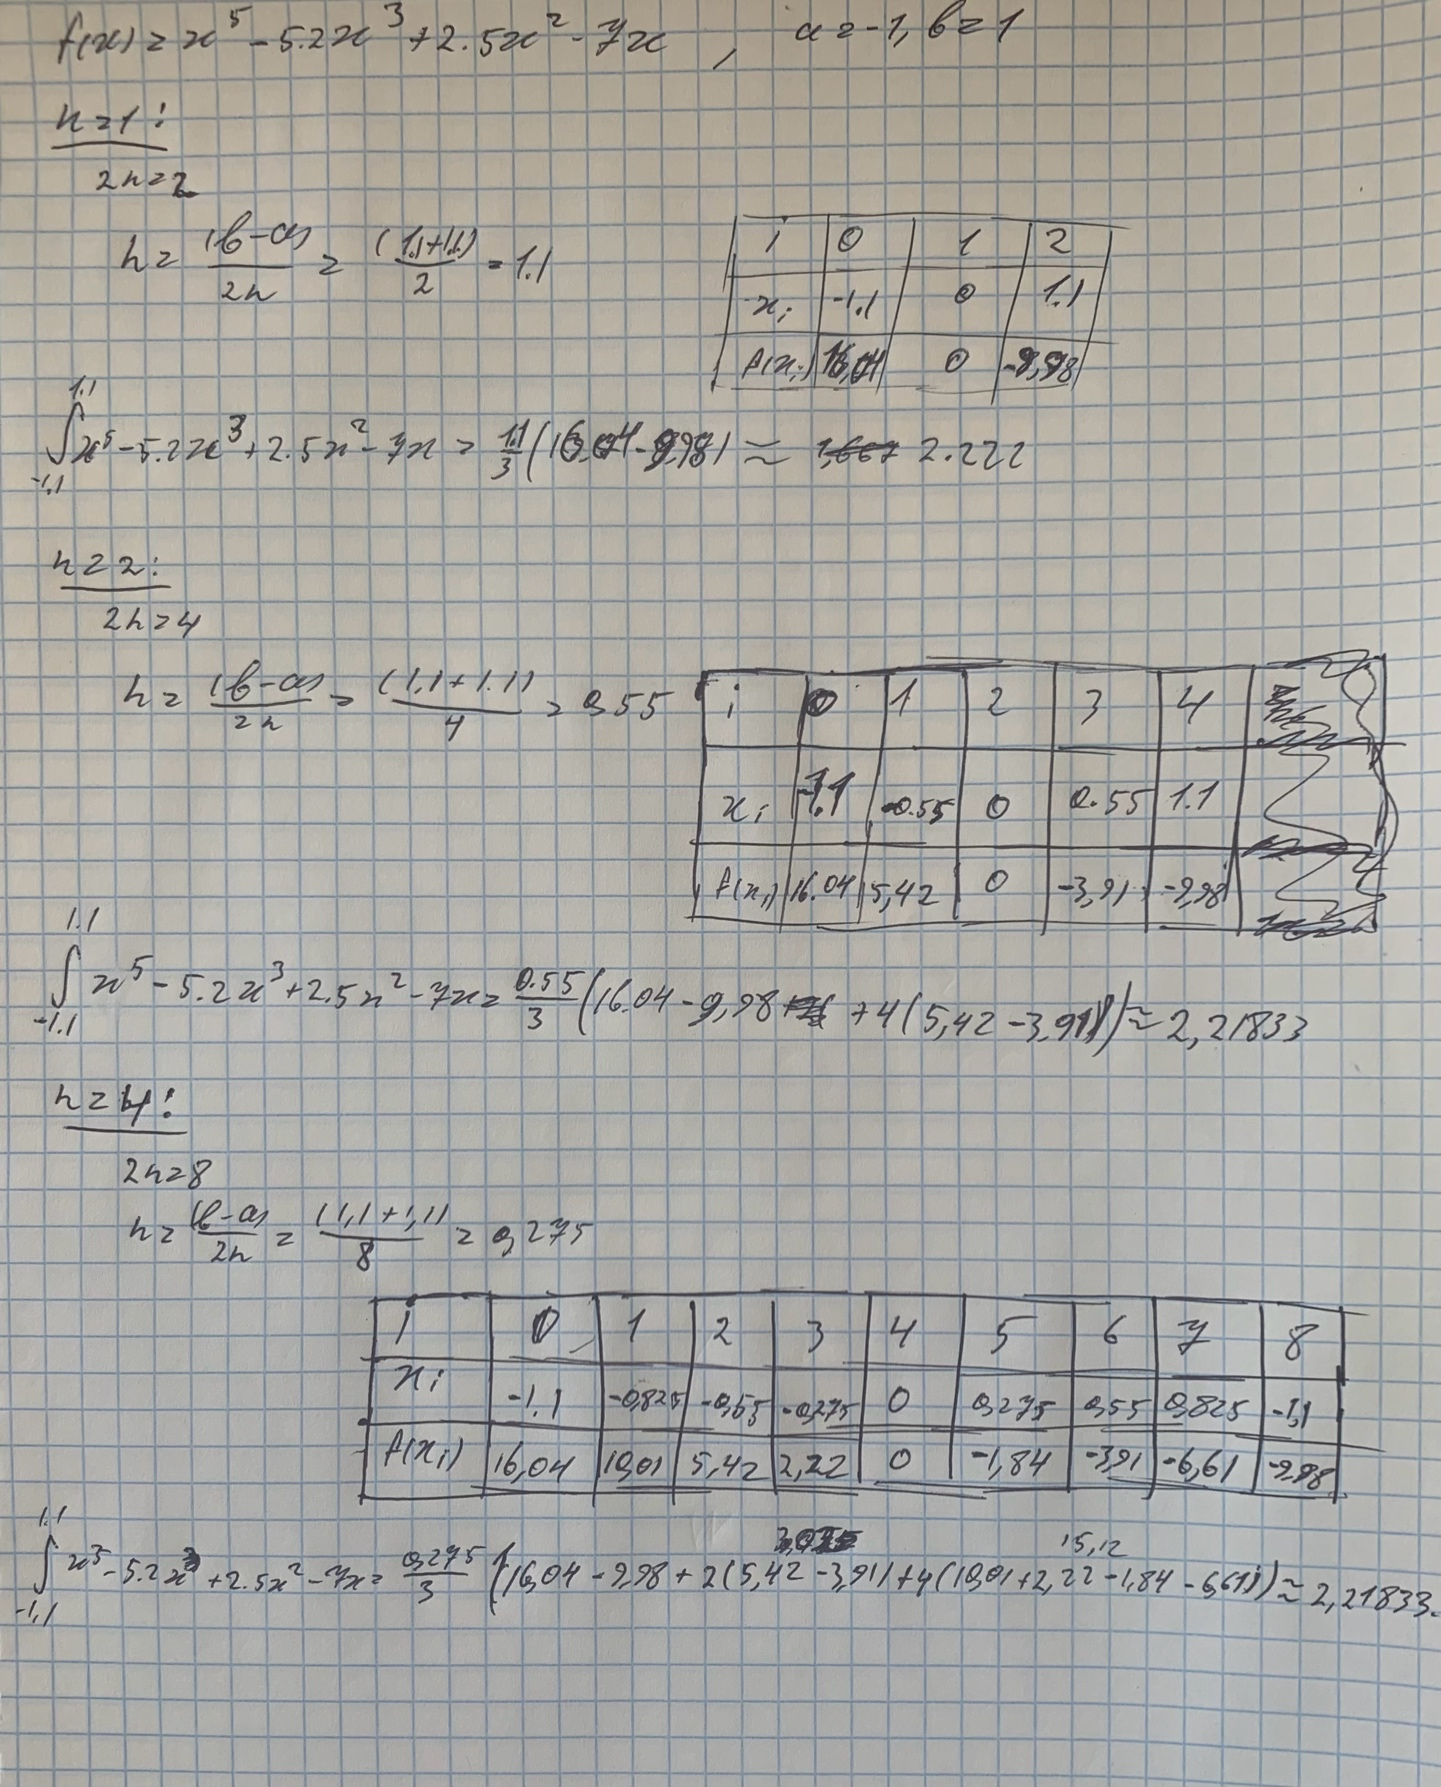 f(x) = x^5 - 5.2x^3 + 2.5x^2 - 7x , a = -1, b = 1
n=1:
2n=2
h = (b-a)/2n = (1.1+1.1)/2 = 1.1
i 0 1 2
x_i -1.1 0 1.1
f(x_i) 16,04 0 -9,98
∫_{-1.1}^{1.1} x^5 - 5.2x^3 + 2.5x^2 - 7x = 1.1/3 (16.04 - 9,98) ≈ 2.222
n=2:
2n=4
h = (b-a)/2n = (1.1+1.1)/4 = 0,55
i 0 1 2 3 4
x_i -1.1 -0.55 0 0.55 1.1
f(x_i) 16.04 5,42 0 -3,91 -9,98
∫_{-1.1}^{1.1} x^5 - 5.2x^3 + 2.5x^2 - 7x = 0.55/3 (16.04 - 9,98 + 4(5,42 - 3,91)) ≈ 2,21833
n=4:
2n=8
h = (b-a)/2n = (1,1+1,1)/8 = 0,275
i 0 1 2 3 4 5 6 7 8
x_i -1.1 -0,825 -0,55 -0,275 0 0,275 0,55 0,825 -1,1
f(x_i) 16,04 10,01 5,42 2,22 0 -1,84 -3,91 -6,61 -9,98
15,12
∫_{-1,1}^{1.1} x^5 - 5.2x^3 + 2.5x^2 - 7x = 0,275/3 (16,04 - 9,98 + 2(5,42 - 3,91) + 4(10,01 + 2,22 - 1,84 - 6,61)) ≈ 2,21833.